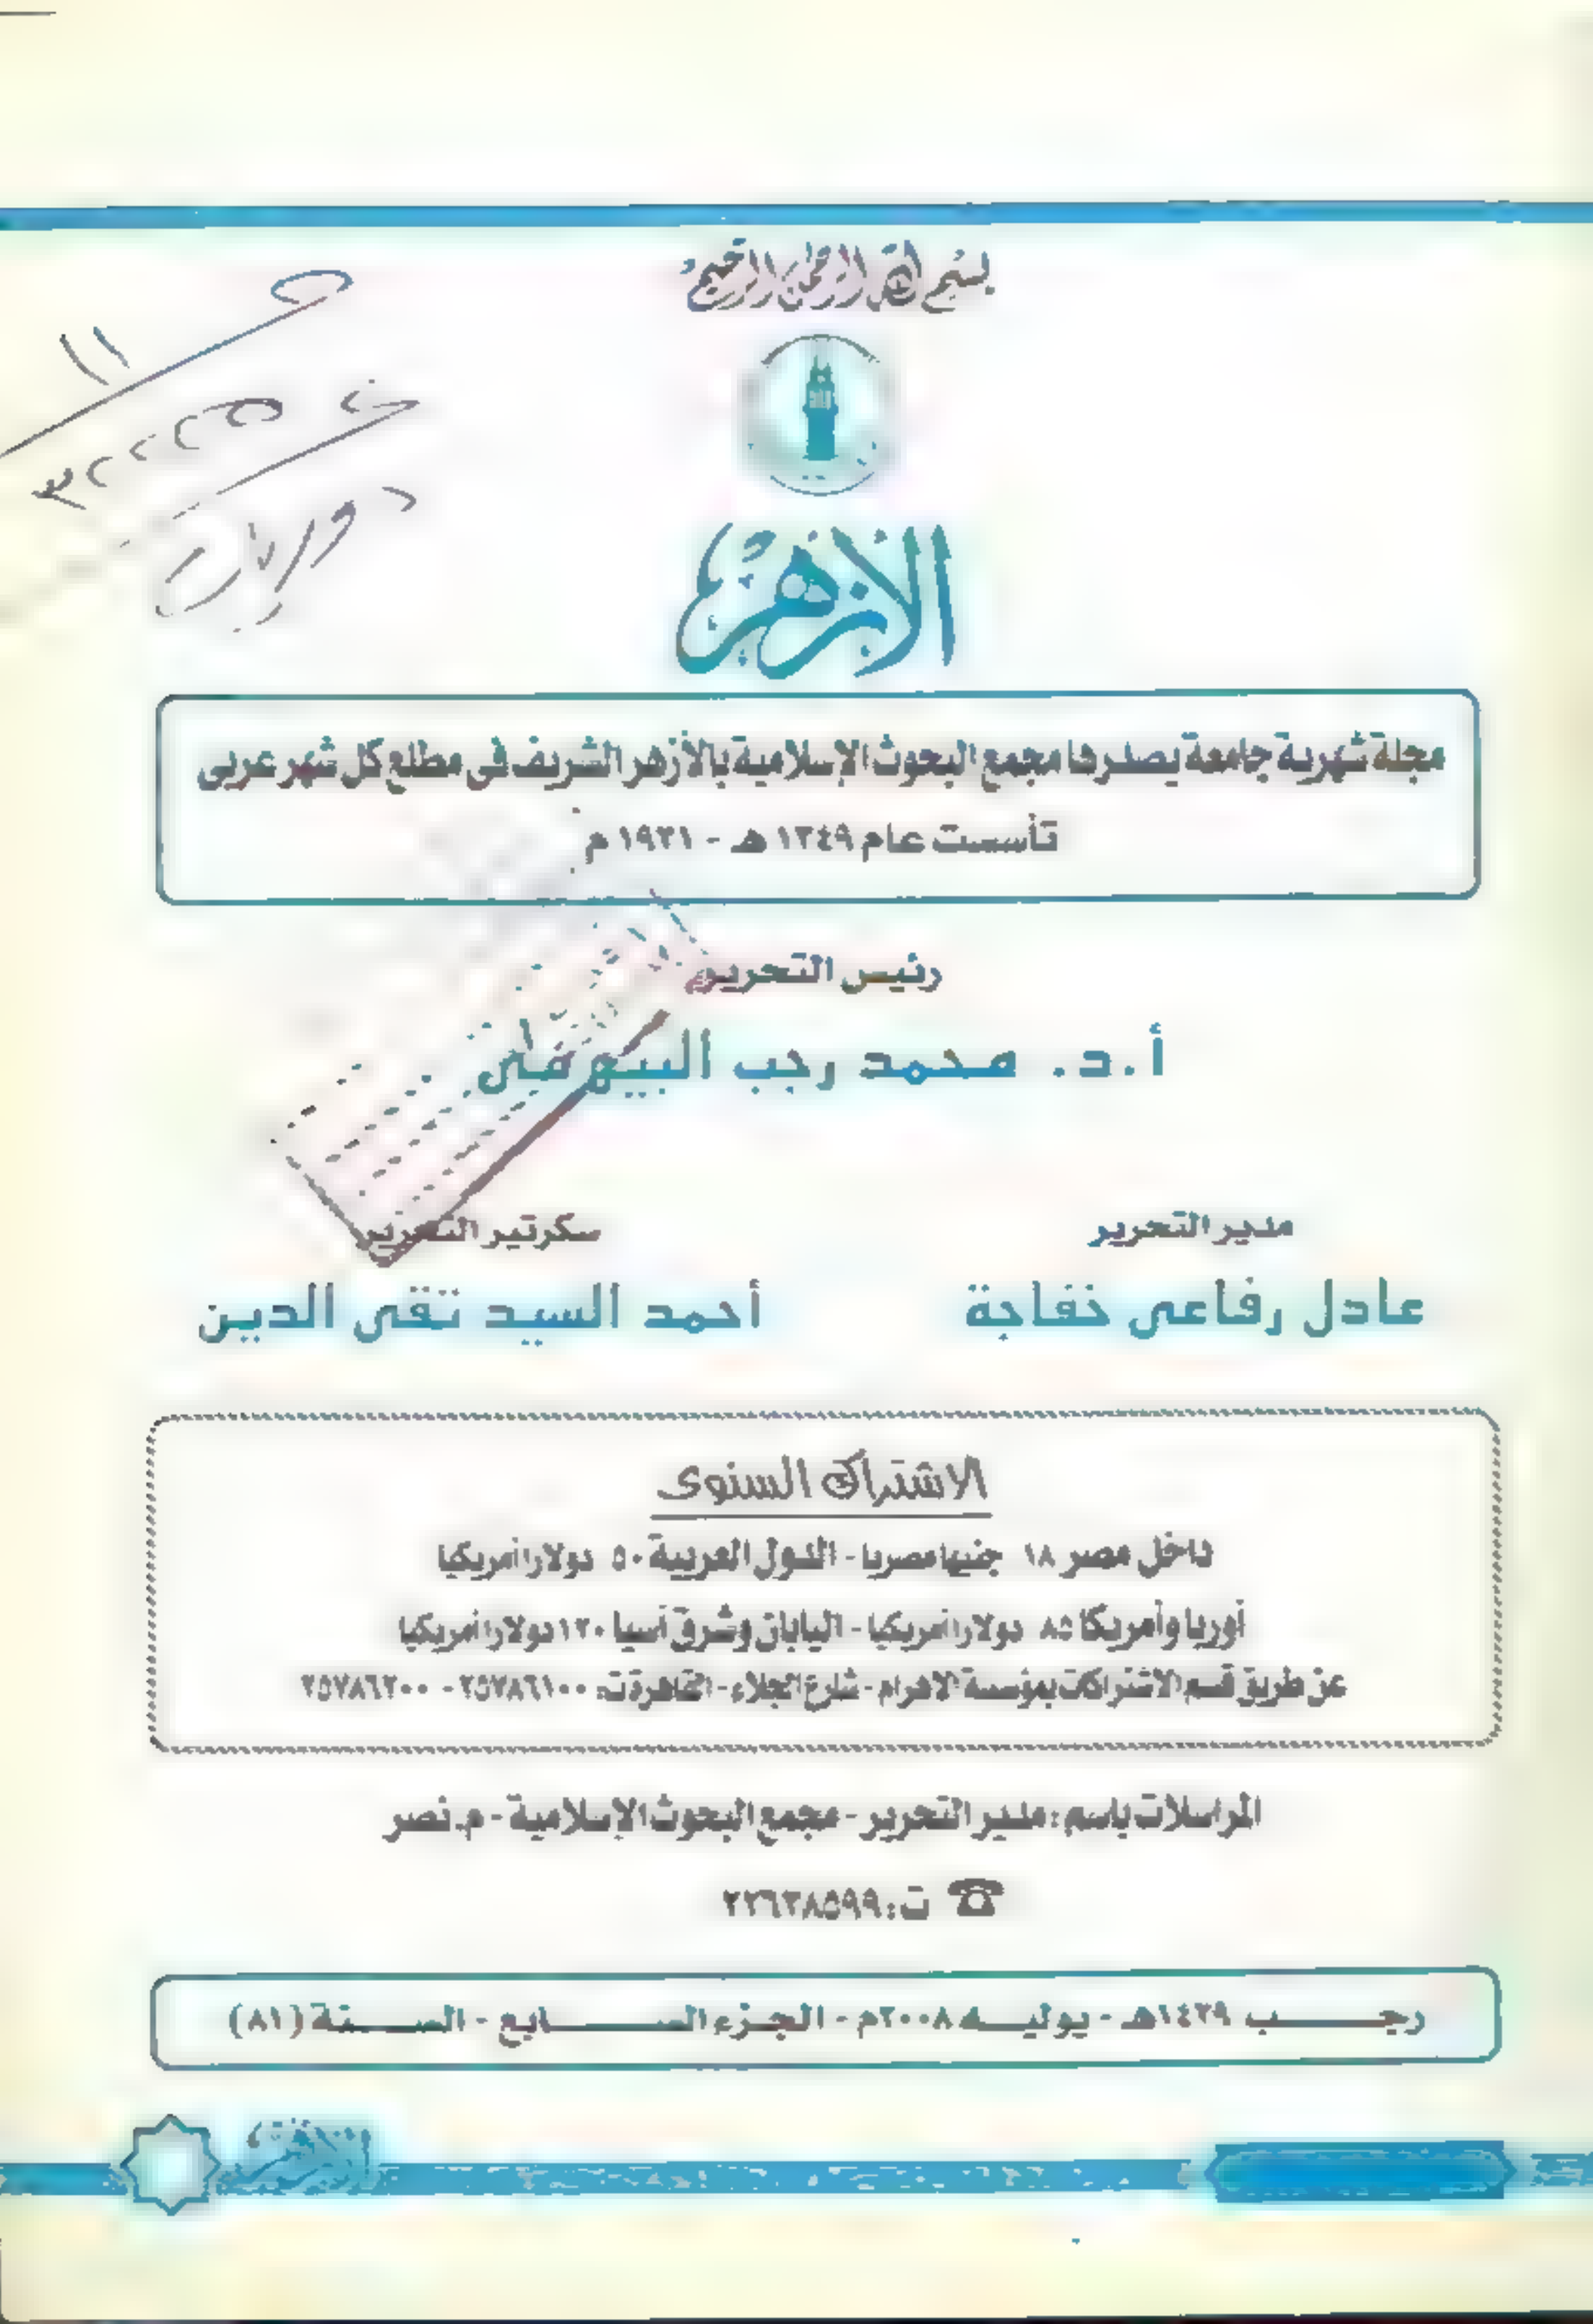 بسم الله الرحمن الرحيم
الأزهر
مجلة شهرية جامعة يصدرها مجمع البحوث الإسلامية بالأزهر الشريف فى مطلع كل شهر عربى
تأسست عام ١٣٤٩ هـ - ١٩٣١ م
رئيس التحرير
أ.د. محمد رجب البيومى
مدير التحرير
عادل رفاعى خفاجة
سكرتير التحرير
أحمد السيد تقى الدين
الاشتراك السنوى
داخل مصر ١٨ جنيها مصريا - الدول العربية ٥٠ دولارا أمريكيا
أوربا وأمريكا ٨٥ دولارا أمريكيا - اليابان وشرق آسيا ١٢٠ دولارا أمريكيا
عن طريق قسم الاشتراكات بمؤسسة الأهرام - شارع الجلاء - القاهرة ت: ٢٥٧٨٦١٠٠ - ٢٥٧٨٦٢٠٠
المراسلات باسم : مدير التحرير - مجمع البحوث الإسلامية - م. نصر
ت: ٢٢٦٣٨٥٩٩
رجب ١٤٢٩هـ - يوليه ٢٠٠٨م - الجزء السابع - السنة (٨١)
الأزهر
دوريات